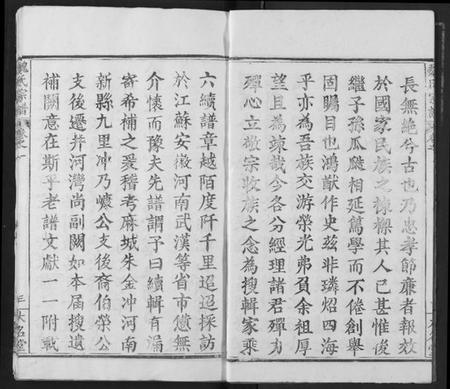 長無絶兮古也乃忠孝節亷者報效
於國家民族之棟樑其人已甚惟後
繼子孫瓜瓞相延篤學而不倦創舉
固矚目也鴻猷作史茲非璘炤四海
乎亦為吾族交游榮光弗負余祖厚
望且為竦哉今各分經理諸君殫方
殫心立敬宗收族之念為搜輯家乘
六續譜章越陌度阡千里迢迢採訪
於江蘇安徽河南武漢等省市憊無
介懷而豫夫先譜謂予曰續輯有漏
審希補之爰稽考麻城朱金冲河南
新縣九里冲乃慷公支後裔伯榮公
支後遷井河灣尚副闕如本届搜遺
補闕意在斯乎老譜文獻一一附載
魏氏宗譜